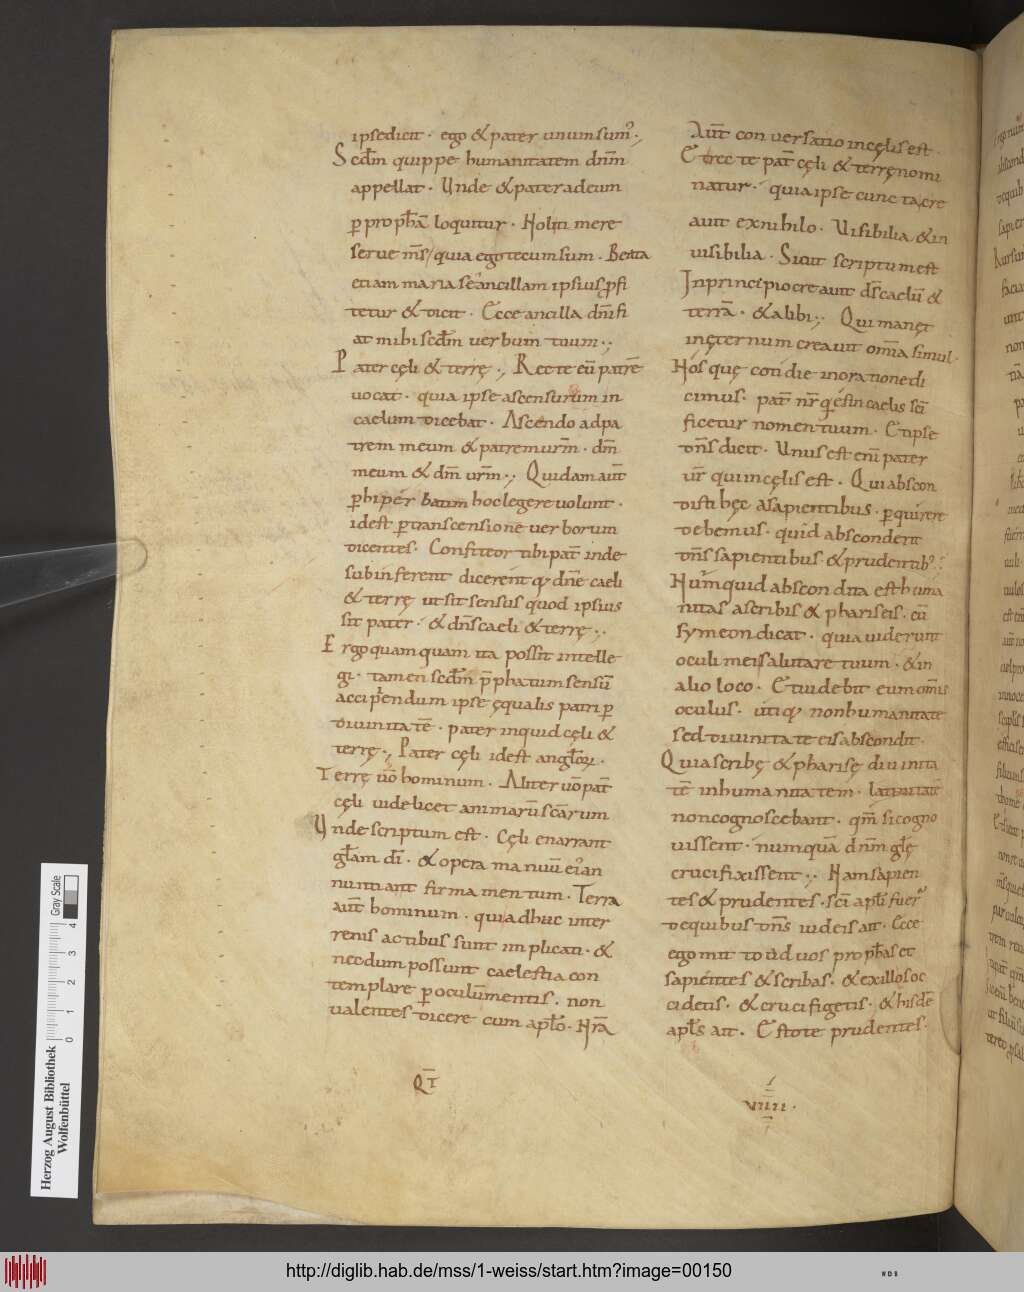 ipse dicit · ego & pater unum sum᾽ ·,
Scd̄m quippe humanitatem dn̄m
appellat · Unde & pater ad eum
ꝑ proph̄a loquitur · Noli timere
serue m̄s / quia ego tecum sum · Beata
etiam maria se ancillam ipsius ꝓfi
tetur & dicit · Ecce ancilla dn̄i fi
at mihi scd̄m uerbum tuum ·,·
Pater cęli & terrę ·, Recte eū patrē
uocat · quia ipse ascensurum in
caelum dicebat · Ascendo ad pa
trem meum & patrem ur̄m · dm̄
meum & dm̄ ur̄m ·,· Quidam aut̄
ꝑ hiperbatim hoc legere uolunt ·
id est ꝑ transcensionē uerborum
dicentes · Confiteor tibi pat̄ inde
subinferent dicerent qꝫ dn̄e caeli
& terrę ut sit sensus quod ipsius
sit pater · & dn̄s caeli & terrę ·,·
Ergo quamquam ita possit intelle
gi · tamen scd̄m p̄phatum sensū
accipiendum ipse ęqualis patri ꝑ
diuinitatē · pater inquid cęli &
terrę ·, Pater cęli id est angl̄oꝝ ·
Terrę uō hominum · Aliter uō pat̄
cęli uidelicet animarū sc̄arum
Unde scriptum est · Cęli enarrant
gl̄am dī · & opera manuū ei᾽ an
nuntiant firmamentum · Terra
aut̄ hominum · qui adhuc inter
renis actibus sunt implicati · &
necdum possunt caelestia con
templare ꝑ oculū mentis · non
ualentes dicere cum apl̄o · Nr̄a
Aut̄ conuersatio in cęlis est ·
Et recte pat̄ cęli & terrę nomi
natur · quia ipse cuncta cre
auit ex nihilo · Uisibilia & in
uisibilia · Sicut scriptum est
In principio creauit dś caelū &
terrā · & alibi ·,· Qui manet
in ęternum creauit om̄ia simul ·
Nos quę cotidie in oratione di
cimus · pat̄ nr̄ q̇ es in caelis sc̄i
ficetur nomen tuum · Et ipse
dn̄s dicit · Unus est enī pater
ur̄ qui in cęlis est · Qui abscon
disti hęc a sapientibus · ꝑquirere
debemus · quid absconderit
dn̄s sapientibus · & prudentib᾽ ·,·
Numquid abscondita est huma
nitas a scribis & phariseis · cū
symeon dicat · quia uiderunt
oculi mei salutare tuum · & in
alio loco · Et uidebit eum om̄is
oculus · utiqꝫ non humanitate
sed diuinitate eis abscondit ·
Quia scribę & pharisei diuinita
tē in humanitatem · latentitatē
non cognoscebant · qm̄ si cogno
uissent · numquā dn̄m gl̄ę
crucifixissent ·,· Nam sapien
tes & prudentes · sc̄i apl̄i fuer᾽
de quibus dn̄s iudeis ait · Ecce
ego mitto ad uos proph̄as et
sapientes & scribas · & ex illos oc
cidetis · & crucifigetis · & his dē
apl̄s ait · Estote prudentes ·
QT̄
VIIII ·
Herzog August Bibliothek
Wolfenbüttel
0 1 2 3 4
Gray Scale
http://diglib.hab.de/mss/1-weiss/start.htm?image=00150